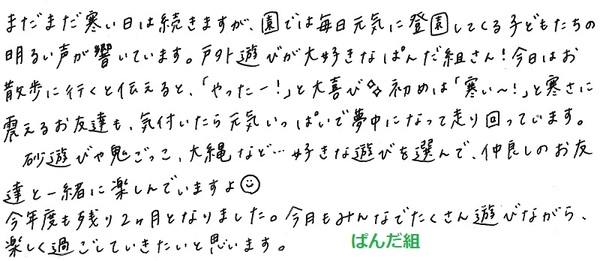 まだまだ寒い日は続きますが、園では毎日元気に登園してくる子どもたちの
明るい声が響いています。戸外遊びが大好きなぱんだ組さん!今日はお
散歩に行くと伝えると、「やったー!」と大喜び✧ 初めは「寒い〜!」と寒さに
震えるお友達も、気付いたら元気いっぱいで夢中になって走り回っています。
砂遊びや鬼ごっこ、大縄など…好きな遊びを選んで、仲良しのお友
達と一緒に楽しんでいますよ☺
今年度も残り2ヶ月となりました。今月もみんなでたくさん遊びながら、
楽しく過ごしていきたいと思います。
ぱんだ組